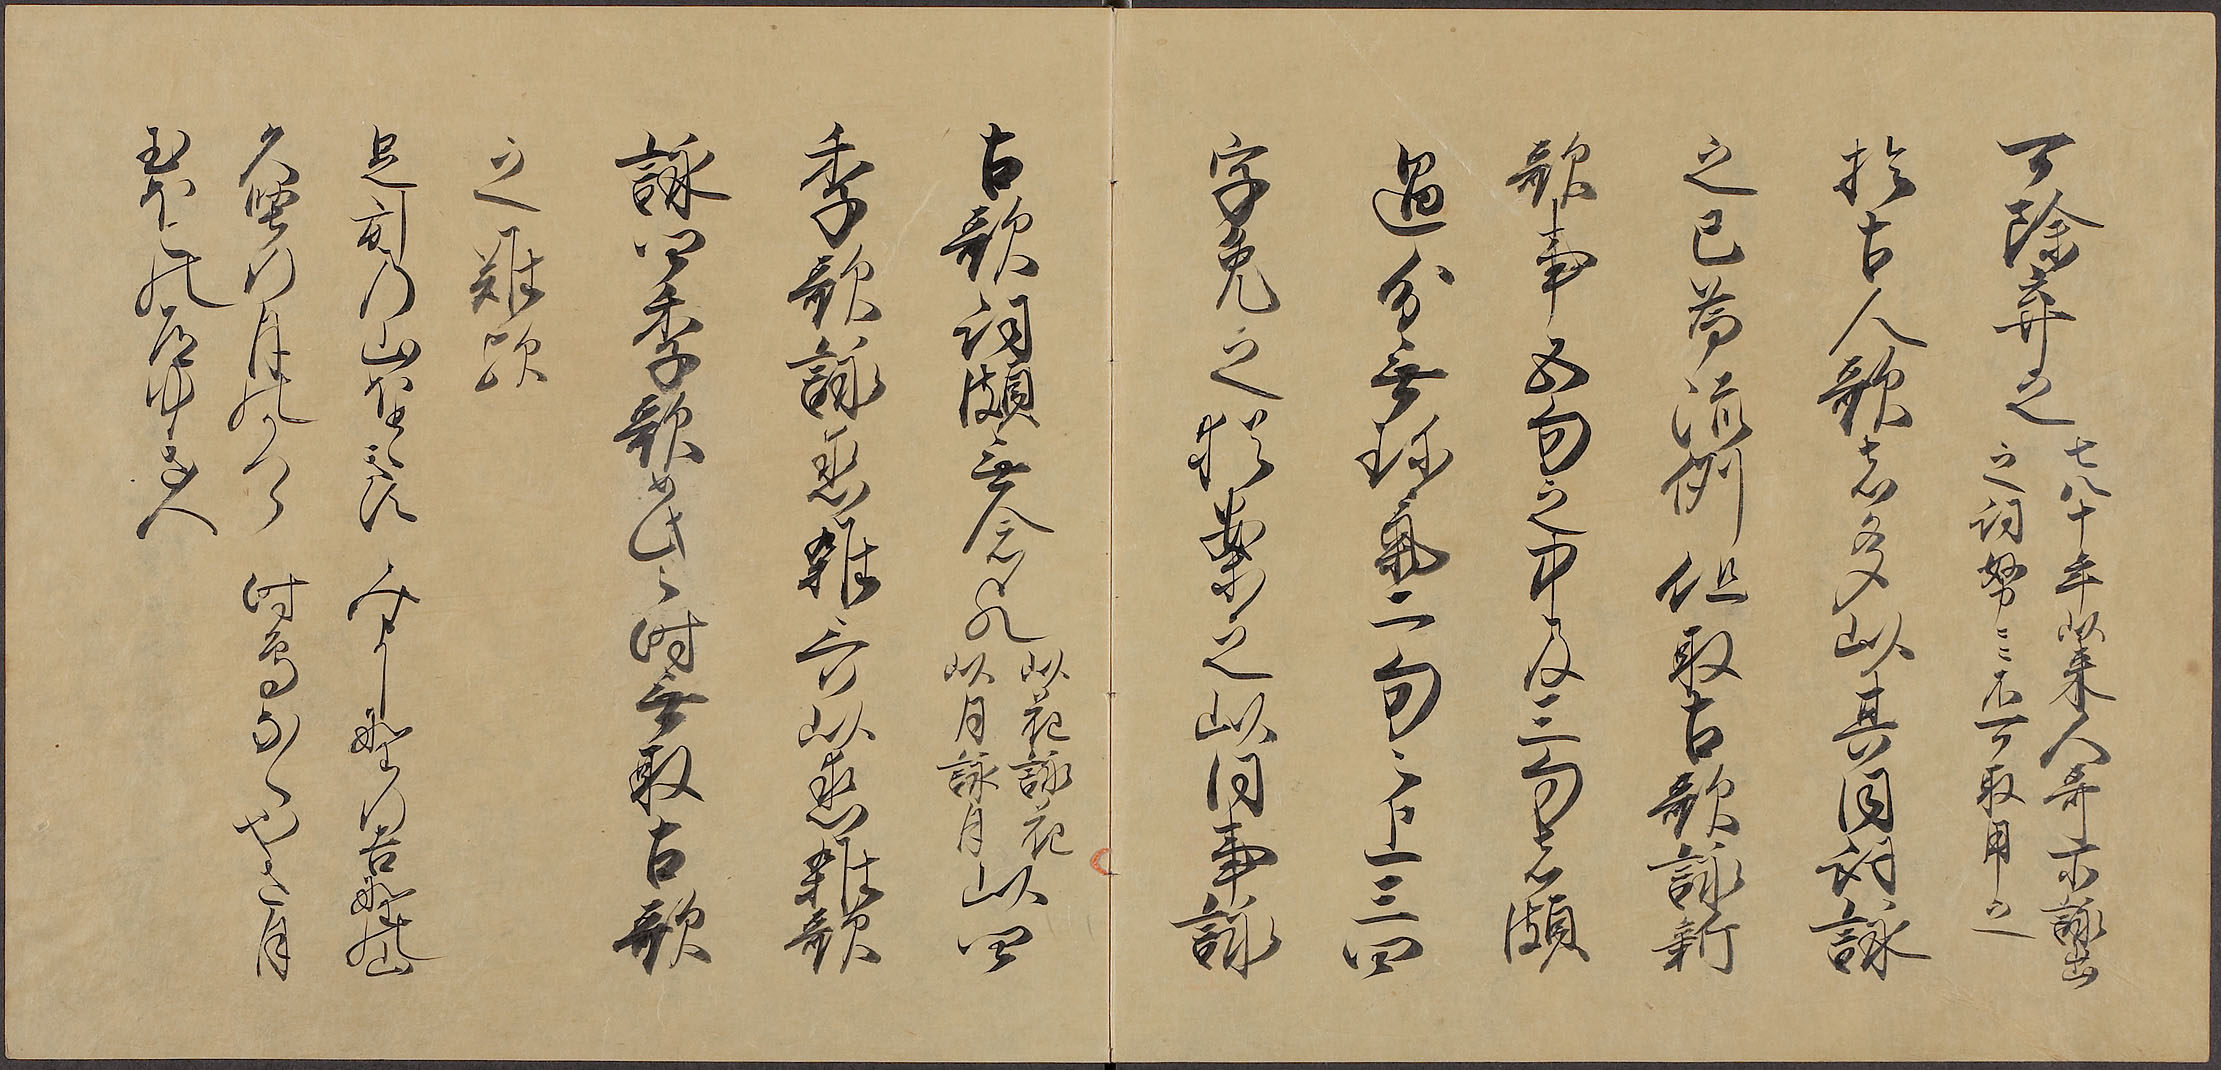 可除弃之 七八十年以来人哥所詠出
之詞努々不可取用之
於古人歌者多以其同詞詠
之已為流例但取古歌詠新
歌事五句之中及三句者頗
過分無珍氣二句之上三四
字免之猶案之以同事詠
古歌詞頗無念歟 以花詠花
以月詠月 以四
季歌詠恋雑哥以恋雑歌
詠四季歌如此之時無取古歌
之難歟
足引の山ほとゝきす みよし野の吉野の山
久堅の月のかつら 時鳥なくやさ月
玉ほこの道ゆき人